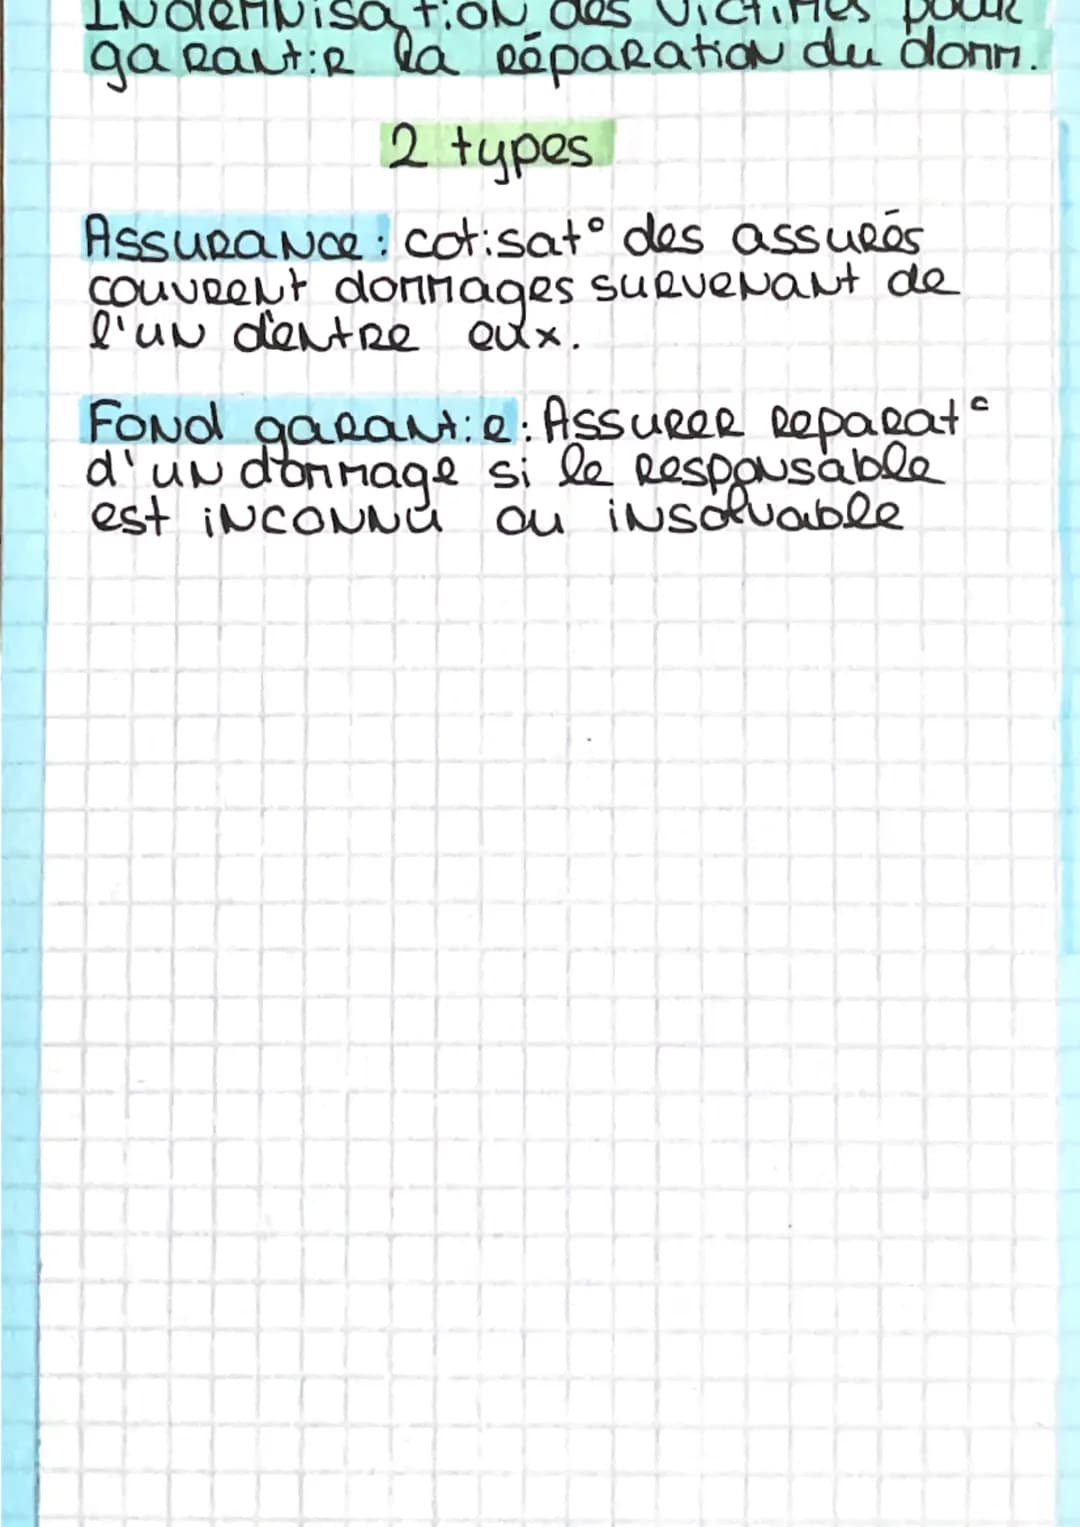 Indemnisation des victimes pour
garantir la réparation du domm.
2 types
Assurance : cotisat° des assurés
couvrent dommages survenant de
l'un d'entre eux.
Fond garantie : Assurer reparat°
d'un dommage si le responsable
est inconnu ou insolvable